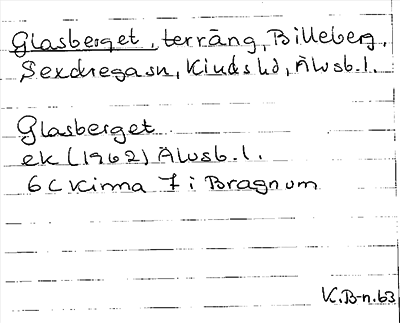 Glasberget, terräng, Billeberg,
Sexdregasn, Kinds hd, Älvsb.l.
Glasberget
ek (1962) Älvsb.l.
6C Kinna 7 i Bragnum
K.B-n.63